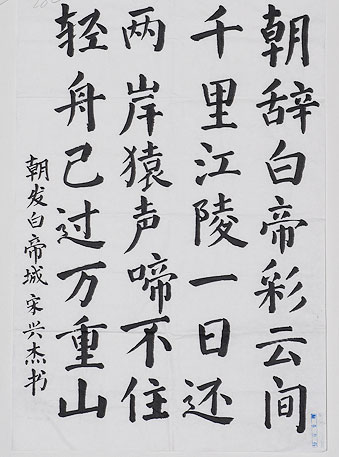 朝辞白帝彩云间
千里江陵一日还
两岸猿声啼不住
轻舟已过万重山
朝发白帝城宋兴杰书